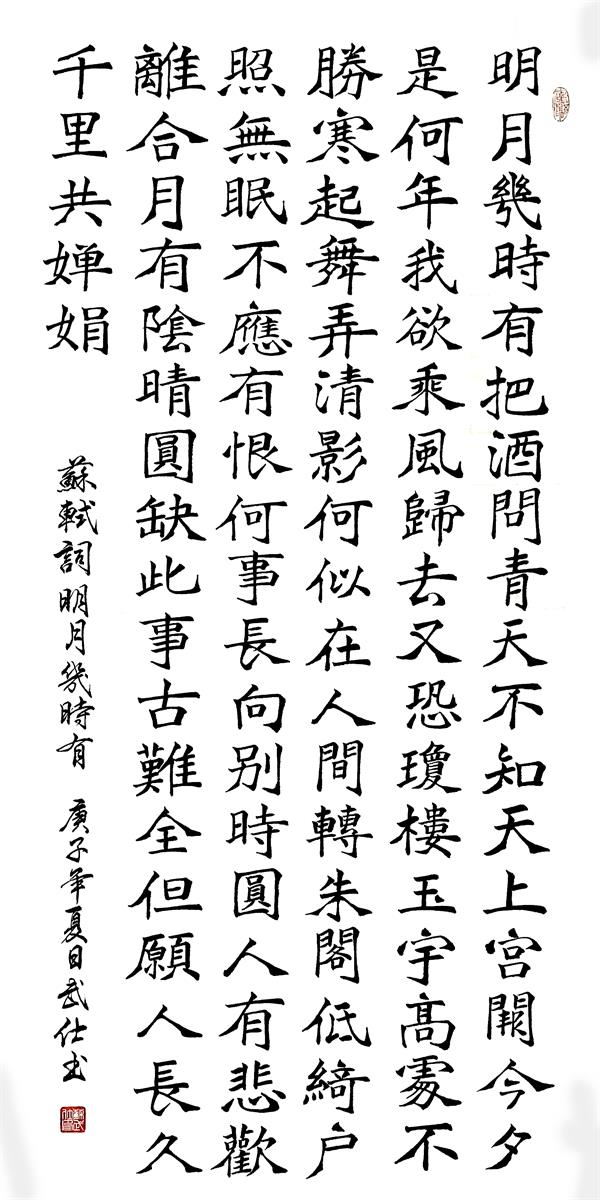 明月幾時有把酒問青天不知天上宮闕今夕
是何年我欲乘風歸去又恐瓊樓玉宇髙處不
勝寒起舞弄清影何似在人間轉朱閣低綺户
照無眠不應有恨何事長向别時圓人有悲歡
離合月有陰晴圓缺此事古難全但願人長久
千里共婵娟
蘇軾詞明月幾時有 庚子年夏日武仕书